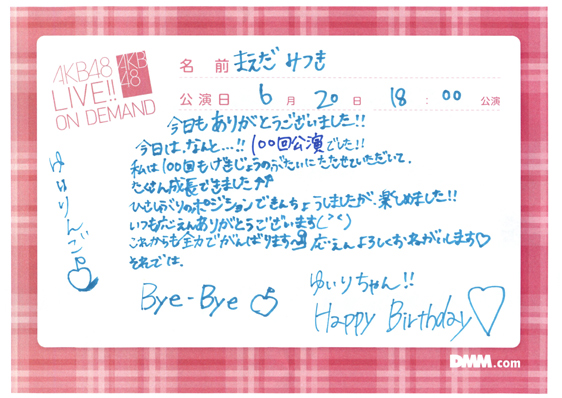 AKB48
LIVE!!
ON DEMAND
AKB
48
名 前 まえだ みつき
公演日 6 月 20 日 18 : 00 公演
今日もありがとうございました!!
今日は、なんと…!! 100回公演でした!!
私は100回もげきじょうのぶたいにたたせていただいて、
たくさん成長できました
ひさしぶりのポジションできんちょうしましたが、楽しめました!!
いつも応えんありがとうございます(><)
これからも全力でがんばります 応えんよろしくおねがいします♡
それでは、
Bye-Bye
ゆいりんご
ゆいりちゃん!!
Happy Birthday♡
DMM.com